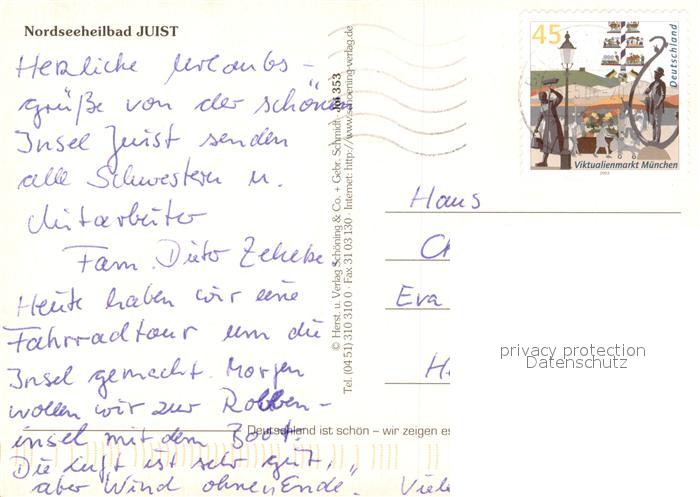 Nordseeheilbad JUIST
Herzliche Urlaubs-
grüße von der schönen
Insel Juist senden
alle Schwestern u.
Mitarbeiter
Fam. Dieter
Heute haben wir eine
Fahrradtour um die
Insel gemacht. Morgen
wollen wir zur Robben-
insel mit dem Boot.
Die Luft ist sehr gut,
aber Wind ohne Ende."
© Herst. u. Verlag Schöning & Co. + Gebr. Schmidt · Jui 353
Tel. (04 51) 310 310 0 · Fax 31 03 130 · Internet: http://www.schoening-verlag.de
Deutschland ist schön – wir zeigen es
45
Deutschland
Viktualienmarkt München
2003
Haus
Eva
privacy protection
Datenschutz